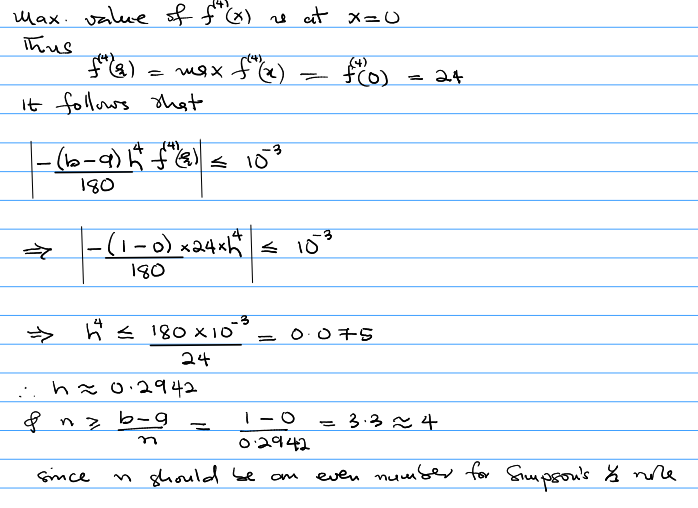 Max. value of f⁽⁴⁾(x) is at x=0
Thus
f⁽⁴⁾(ξ) = max f⁽⁴⁾(x) = f⁽⁴⁾(0) = 24
It follows that
|-(b-a)h⁴ f⁽⁴⁾(ξ)/180| ≤ 10⁻³
⇒ |-(1-0)×24×h⁴/180| ≤ 10⁻³
⇒ h⁴ ≤ 180×10⁻³/24 = 0.0075
∴ h ≈ 0.2942
& n ≥ b-a/n = 1-0/0.2942 = 3.3 ≈ 4
since n should be an even number for Simpson's ⅓ rule